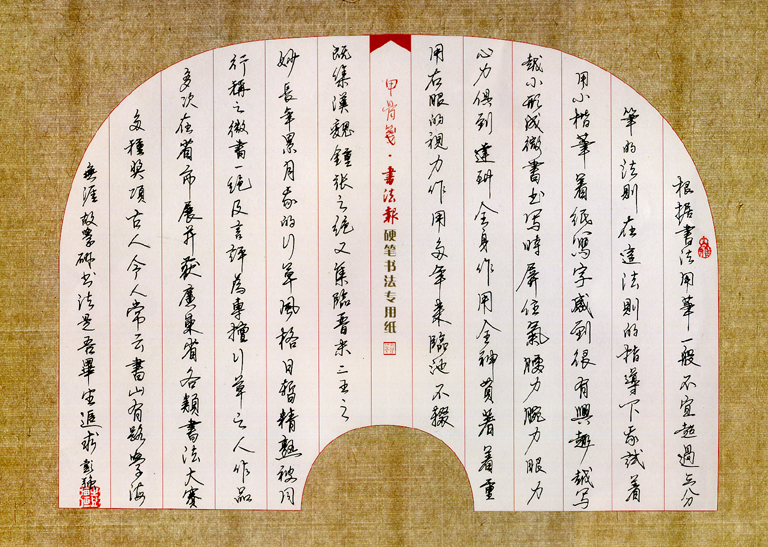 根据书法用笔一般不宜超過三分
筆的法則在這法則的指導下我試着
用小楷筆着紙寫字感到很有興趣越写
越小形成微書书写時屏住氣腰力腕力眼力
心力俱到達到全身作用全神貫着着重
用右眼的視力作用多年来臨池不輟
甲骨笺·書法報硬笔书法专用纸
既集漢魏鍾张之绝又集臨晋宋二王之
妙長年累月我的行草風格日趋精熟被同
行稱之微書一绝及言評為專擅行草之人作品
多次在省市展并获廣東省各類書法大賽
多種獎項古人今人常云書山有路學海
無涯故学研书法是吾畢生追求